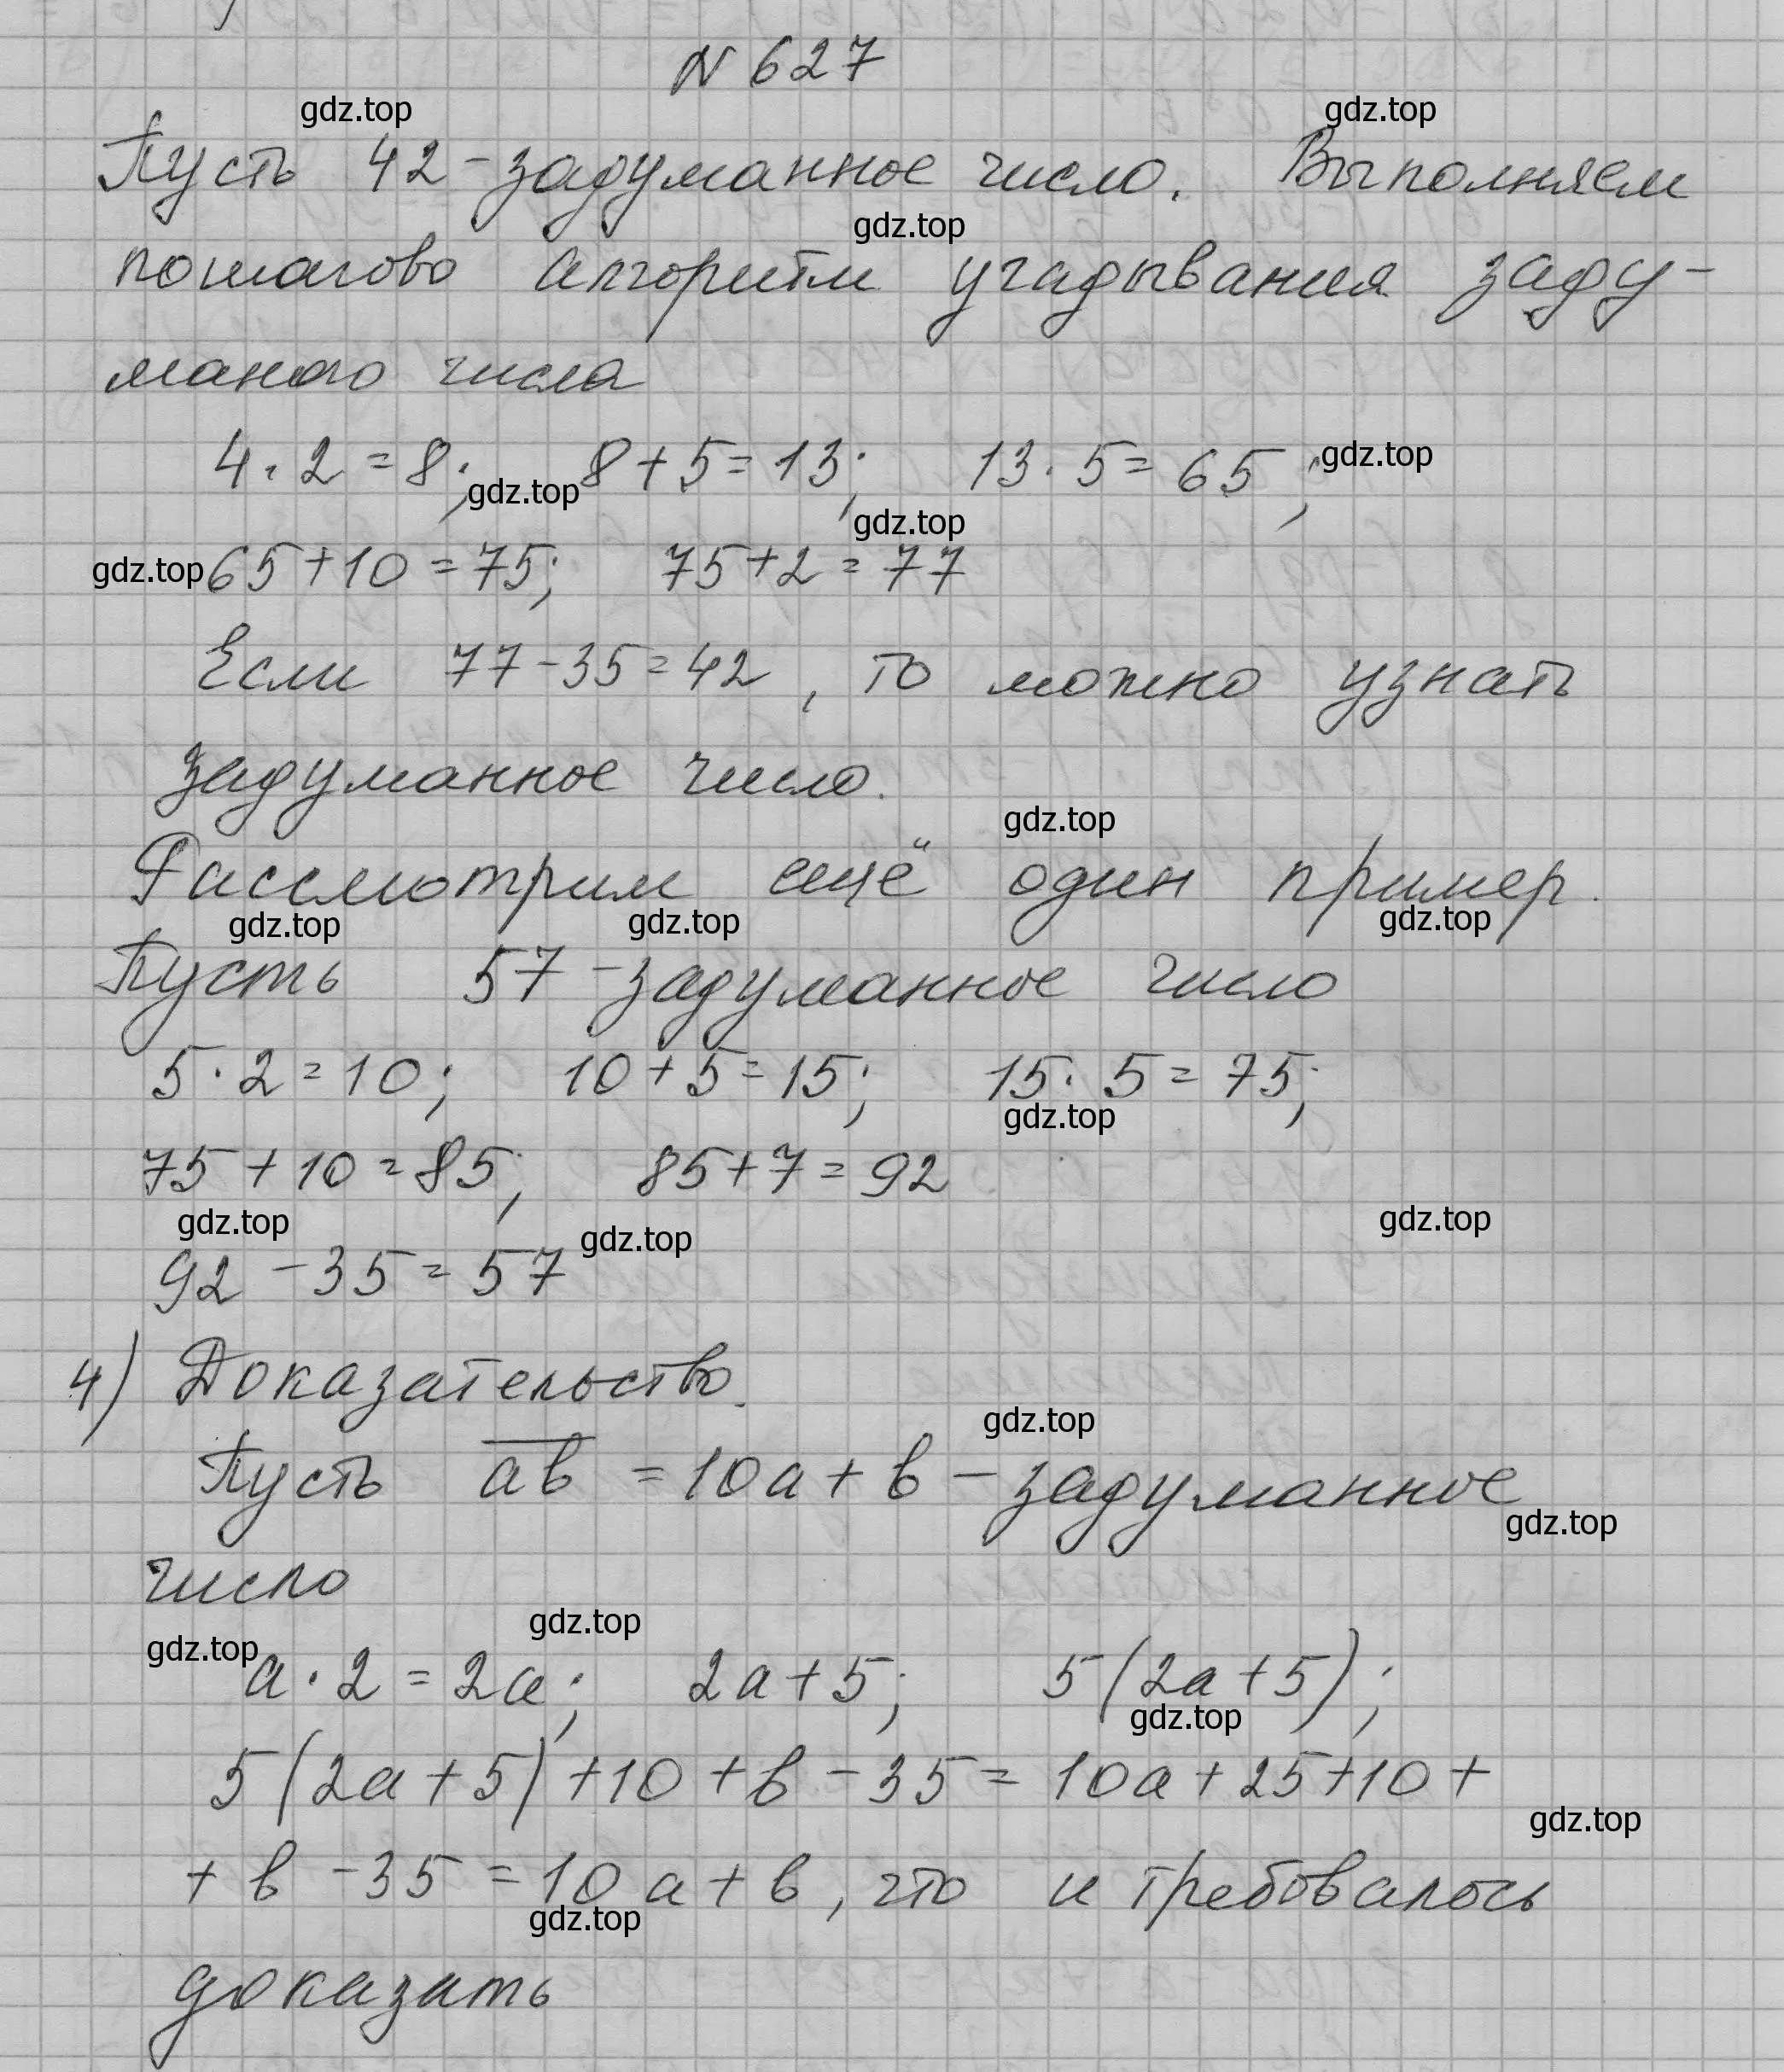 N 627
gdz.top gdz.top
Пусть 42 - задуманное число. Выполняем
gdz.top
пошагово алгоритм угадывания заду-
маного числа
4 · 2 = 8; 8 + 5 = 13; 13 · 5 = 65; gdz.top
gdz.top gdz.top
gdz.top 65 + 10 = 75; 75 + 2 = 77
Если 77 - 35 = 42, то можно узнать
задуманное число.
gdz.top
Рассмотрим ещё один пример.
gdz.top gdz.top gdz.top
Пусть 57 - задуманное число
5 · 2 = 10; 10 + 5 = 15; 15 · 5 = 75;
gdz.top
75 + 10 = 85; 85 + 7 = 92
gdz.top gdz.top gdz.top
92 - 35 = 57
4) Доказательство.
gdz.top
Пусть a̅b̅ = 10a + b - задуманное
gdz.top
число
gdz.top gdz.top
a · 2 = 2a; 2a + 5; 5(2a + 5);
gdz.top
5(2a + 5) + 10 + b - 35 = 10a + 25 + 10 +
gdz.top
+ b - 35 = 10a + b, что и требовалось
gdz.top
доказать